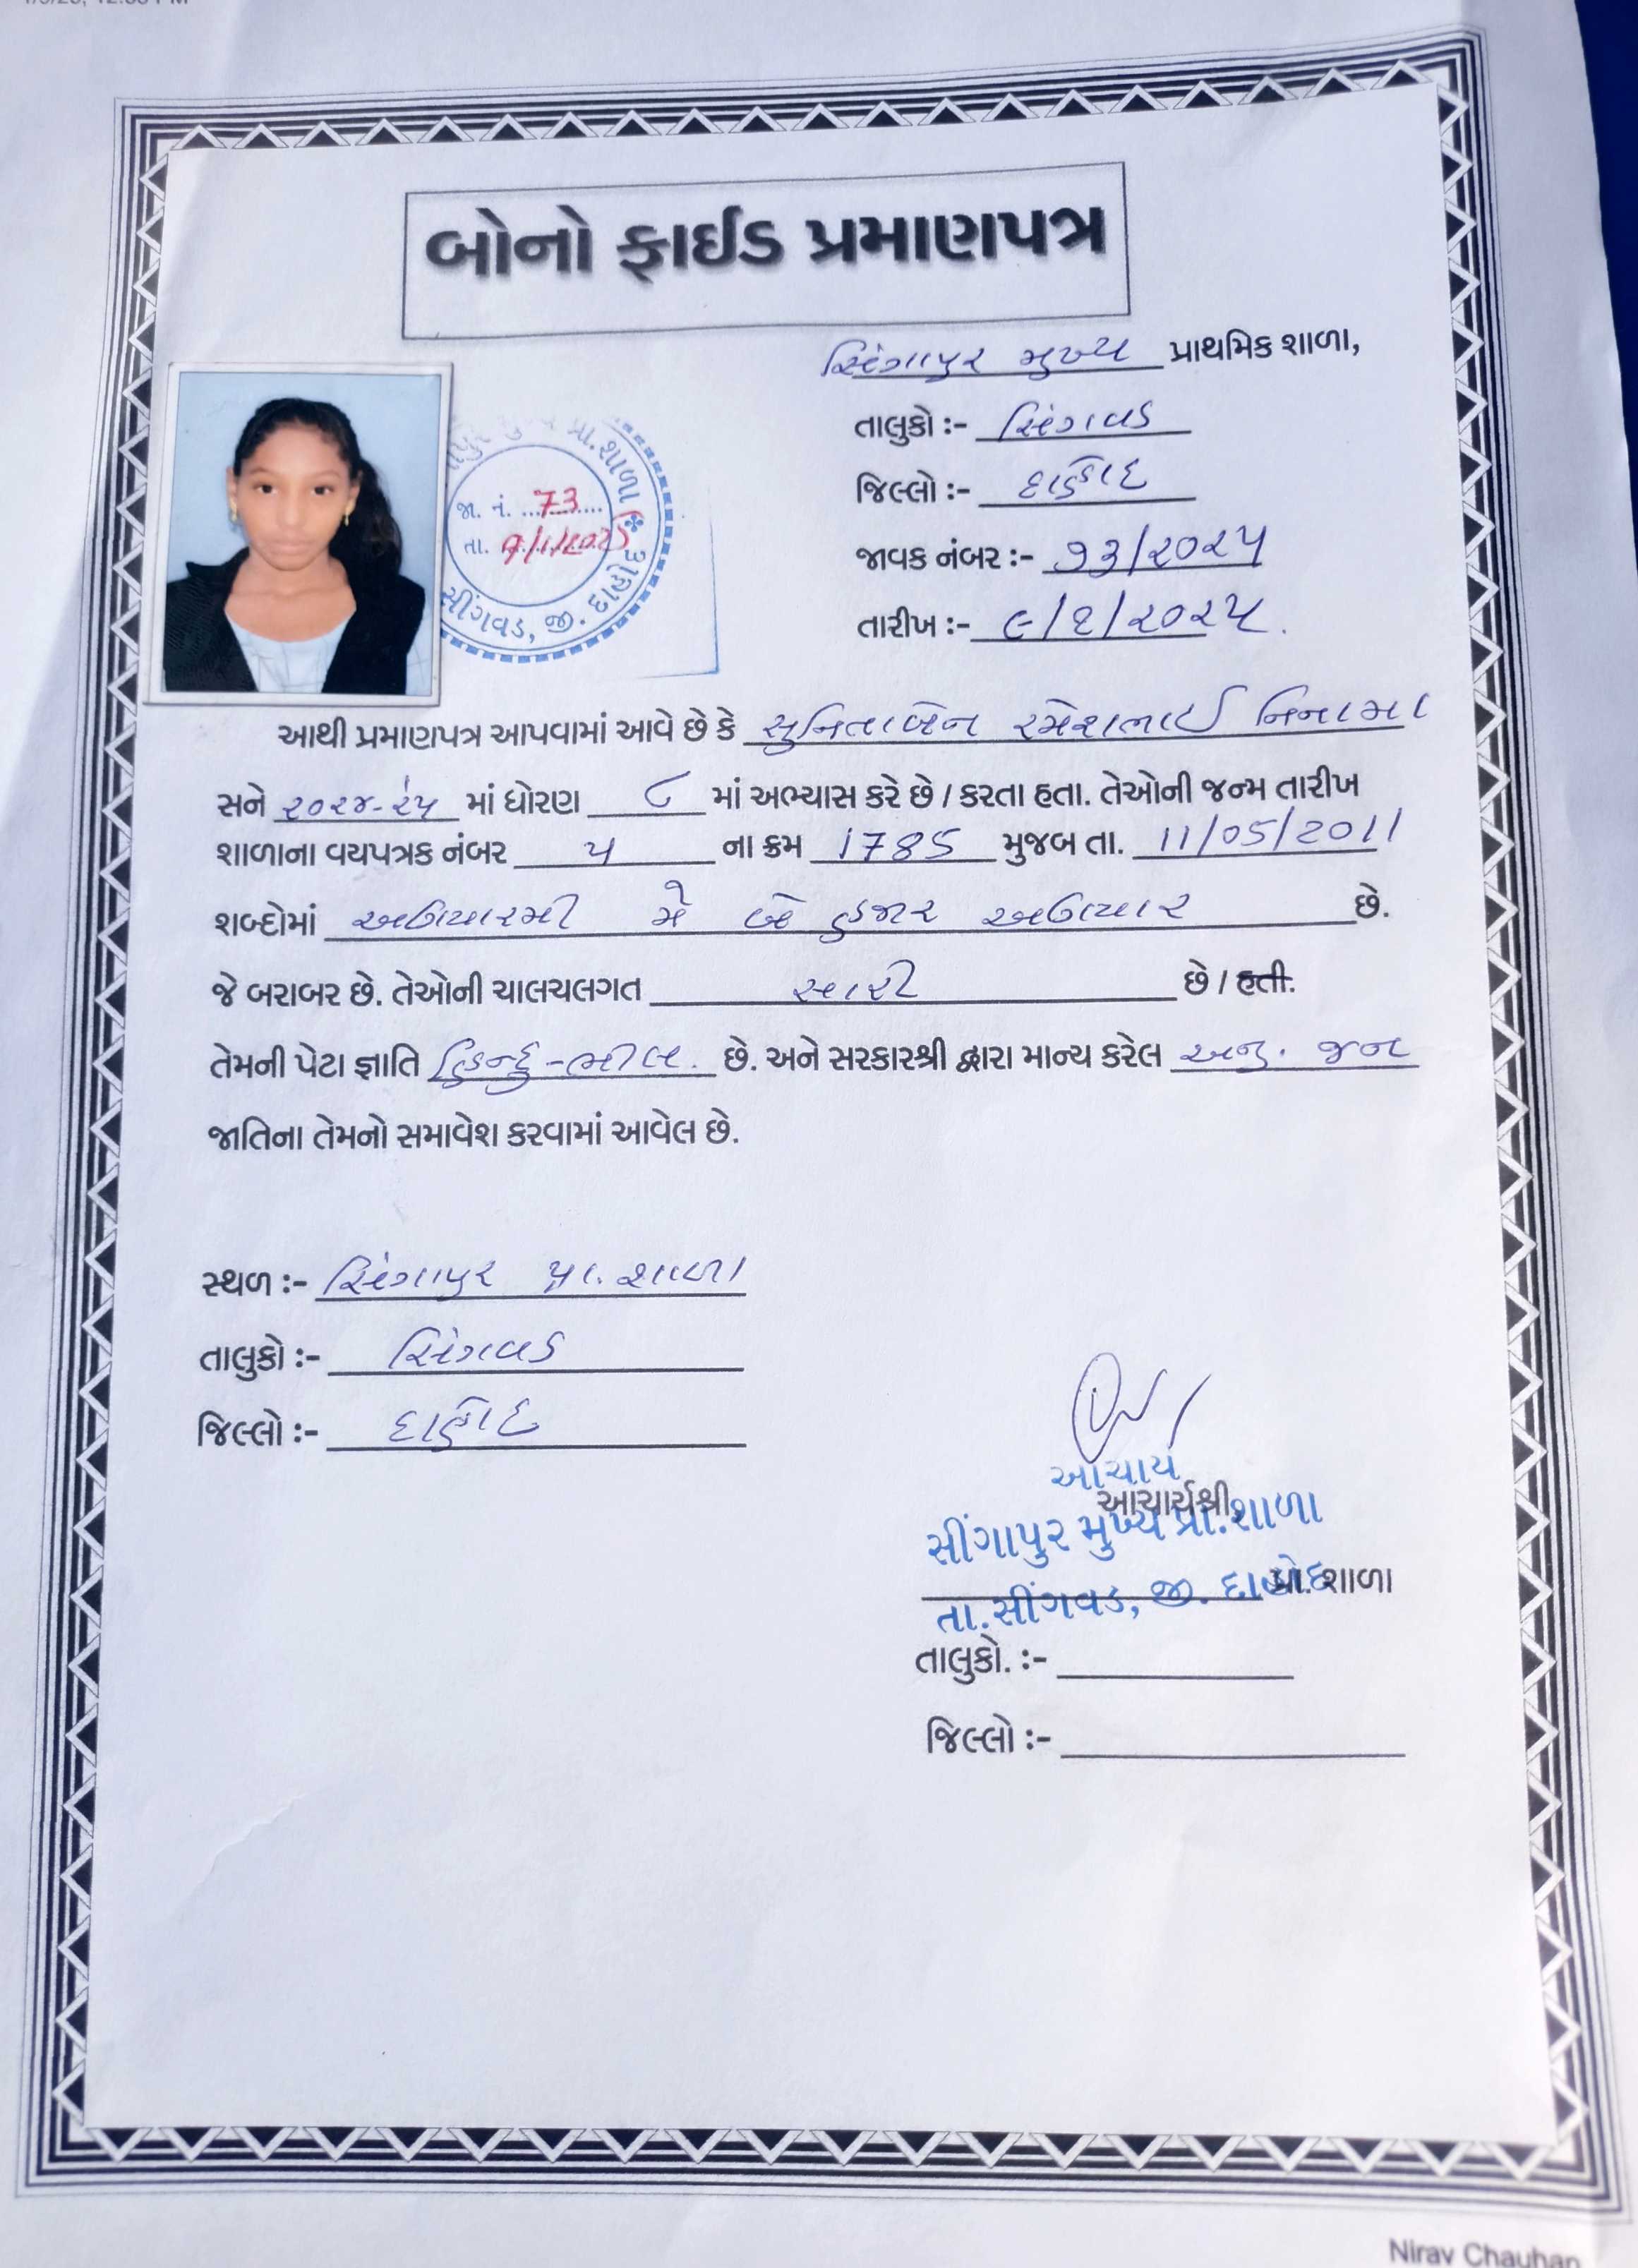 બોનો ફાઈડ પ્રમાણપત્ર
સિંગાપુર મુખ્ય પ્રાથમિક શાળા,
તાલુકો :- સિંગવડ
જિલ્લો :- દાહોદ
જાવક નંબર :- ૭૩/૨૦૨૫
તારીખ :- ૯/૧/૨૦૨૫.
પ્રા.શાળા
જા. નં. 73
તા. 9/1/2025
સીંગવડ, જી. દાહોદ
આથી પ્રમાણપત્ર આપવામાં આવે છે કે સુનિતાબેન રમેશભાઈ નિનામા
સને ૨૦૨૪-૨૫ માં ધોરણ ૮ માં અભ્યાસ કરે છે / કરતા હતા. તેઓની જન્મ તારીખ
શાળાના વયપત્રક નંબર ૫ ના ક્રમ 1785 મુજબ તા. 11/05/2011
શબ્દોમાં અગિયારમી મે બે હજાર અગિયાર છે.
જે બરાબર છે. તેઓની ચાલચલગત સારી છે / હતી.
તેમની પેટા જ્ઞાતિ હિન્દુ-ભીલ. છે. અને સરકારશ્રી દ્વારા માન્ય કરેલ અનુ. જન
જાતિના તેમનો સમાવેશ કરવામાં આવેલ છે.
સ્થળ :- સિંગાપુર પ્રા. શાળા
તાલુકો :- સિંગવડ
જિલ્લો :- દાહોદ
આચાર્ય
આચાર્યશ્રી,
સીંગાપુર મુખ્ય પ્રા.શાળા
પ્રા. શાળા
તા.સીંગવડ, જી. દાહોદ
તાલુકો. :-
જિલ્લો :-
Nirav Chauhan